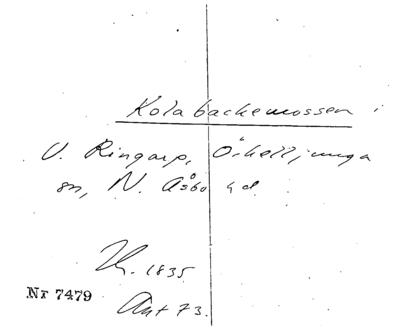 Kolabackemossen i
V. Ringarp, Örkelljunga
sn, N. Åsbo hd.
Kr. 1835
Nr 7479
Ant 73.